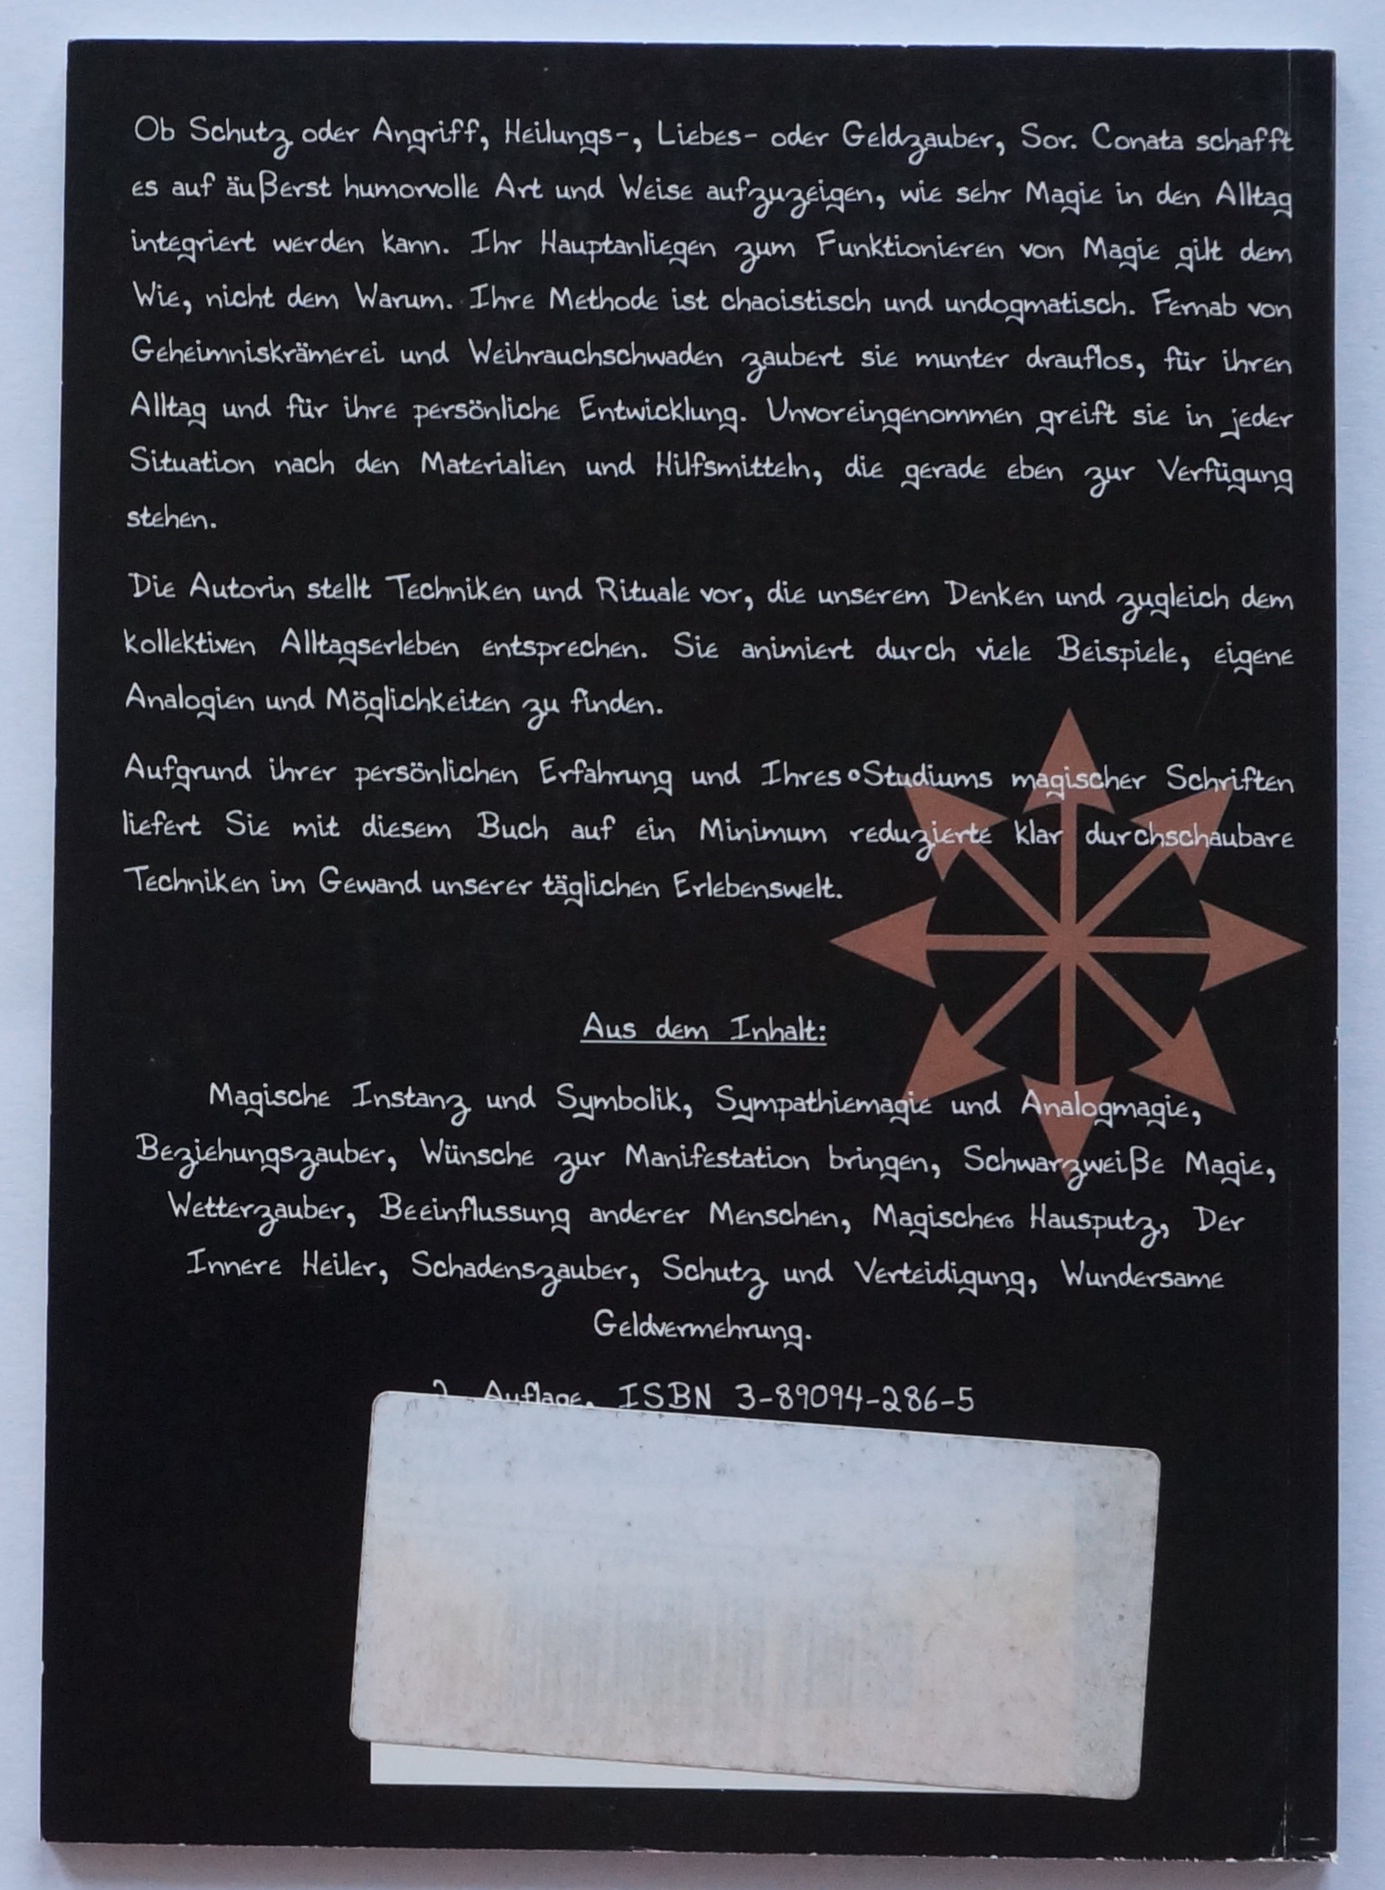 Ob Schutz oder Angriff, Heilungs-, Liebes- oder Geldzauber, Sor. Conata schafft
es auf äußerst humorvolle Art und Weise aufzuzeigen, wie sehr Magie in den Alltag
integriert werden kann. Ihr Hauptanliegen zum Funktionieren von Magie gilt dem
Wie, nicht dem Warum. Ihre Methode ist chaoistisch und undogmatisch. Fernab von
Geheimniskrämerei und Weihrauchschwaden zaubert sie munter drauflos, für ihren
Alltag und für ihre persönliche Entwicklung. Unvoreingenommen greift sie in jeder
Situation nach den Materialien und Hilfsmitteln, die gerade eben zur Verfügung
stehen.
Die Autorin stellt Techniken und Rituale vor, die unserem Denken und zugleich dem
kollektiven Alltagserleben entsprechen. Sie animiert durch viele Beispiele, eigene
Analogien und Möglichkeiten zu finden.
Aufgrund ihrer persönlichen Erfahrung und Ihres Studiums magischer Schriften
liefert Sie mit diesem Buch auf ein Minimum reduzierte klar durchschaubare
Techniken im Gewand unserer täglichen Erlebenswelt.
Aus dem Inhalt:
Magische Instanz und Symbolik, Sympathiemagie und Analogmagie,
Beziehungszauber, Wünsche zur Manifestation bringen, Schwarzweiße Magie,
Wetterzauber, Beeinflussung anderer Menschen, Magischer Hausputz, Der
Innere Heiler, Schadenszauber, Schutz und Verteidigung, Wundersame
Geldvermehrung.
Auflage, ISBN 3-89094-286-5